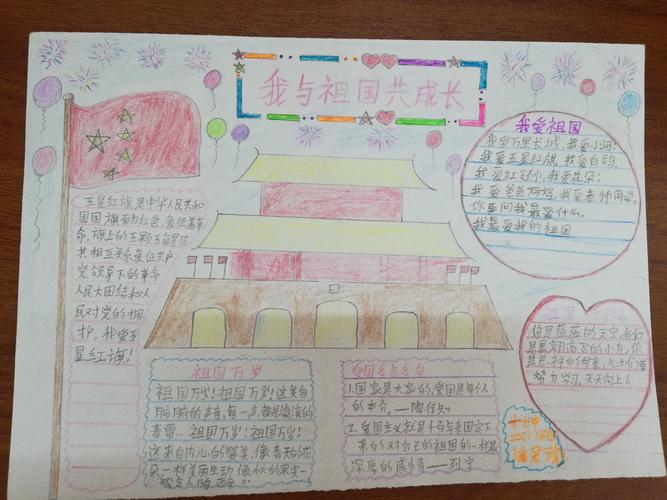 我与祖国共成长
我爱祖国
我爱万里长城,我爱小河!
我爱五星红旗,我爱白鸽,
我爱红领巾,我爱花朵;
我爱爸爸妈妈,我爱老师同学,
你要问我最爱什么,
我最爱我的祖国
五星红旗是中华人民共和
国国旗,旗面为红色,象征着革
命,旗上的五颗五角星及
其相互关系象征共产
党领导下的革命
人民大团结和人
民对党的拥
护,我爱五
星红旗!
祖国
你是蔚蓝的天空,我们
是展翅高飞的小鸟,你
是慈祥的母亲,儿女们
努力学习,天天向上!
祖国万岁
祖国万岁!祖国万岁!这发自
的声音,每一声都是滚滚的
春雷、祖国万岁!祖国万岁!
这来自内心的赞美,像春天的花
朵一样美丽生动,像秋的果实一
爱国名言名句
1.国家是大家的,爱国是每个人
的本分。——陶行知
2.爱国主义就是千百年来固定下
来的对自己的祖国的一种最
深厚的感情——列宁
十中